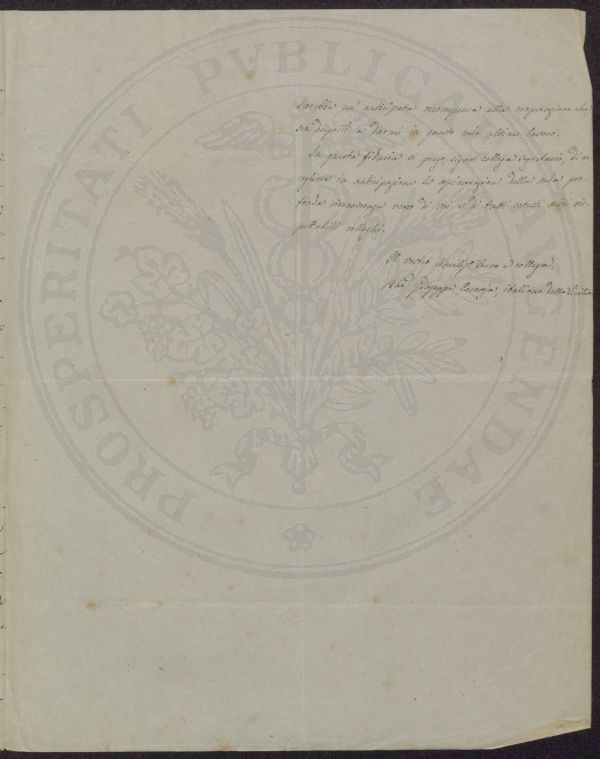 PROSPERITATI PVBLICAE AVGENDAE
sarebbe un' anticipata ricompensa alla cooperazione che
sia disposti a darmi in questo mio ultimo lavoro.
In questa fiducia vi prego, signor collega segretario, di ac
cogliere in anticipazione le assicurazioni della mia pro
fonda riconoscenza verso di voi e di tutti cotesti miei ris
pettabili colleghi.
Il vostro Umiliss.o servo e collega
Giuseppe italiano della Sicilia